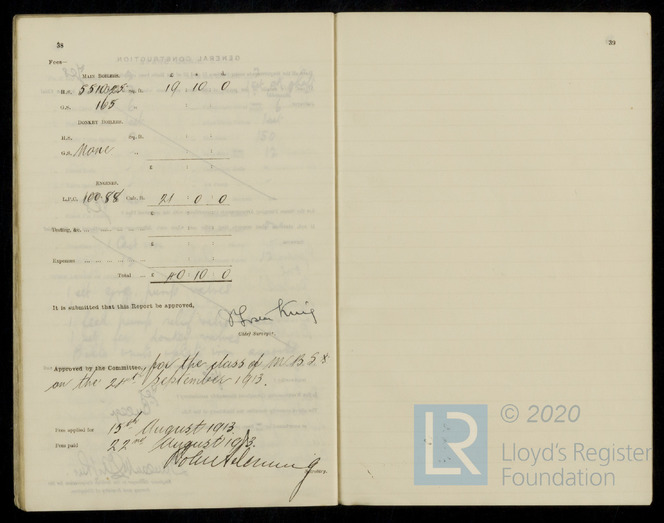 38
Fees—
MAIN BOILERS. £ s. d.
H.S. Sq. ft. 19 10 0
G.S. 165
DONKEY BOILERS.
H.S. Sq. ft.
G.S. None
£
ENGINES.
L.P.C. 100.88 Cub. ft. 21 0 0
£
Testing, &c.
£
Expenses
Total £ 40 10 0
It is submitted that this Report be approved,
Chief Surveyor.
Approved by the Committee, for the class of M.B.S.*
on the 24th September 1913.
Fees applied for 15th August 1913.
Fees paid 22nd August 1913.
Secretary.
39
LR © 2020
Lloyd's Register
Foundation